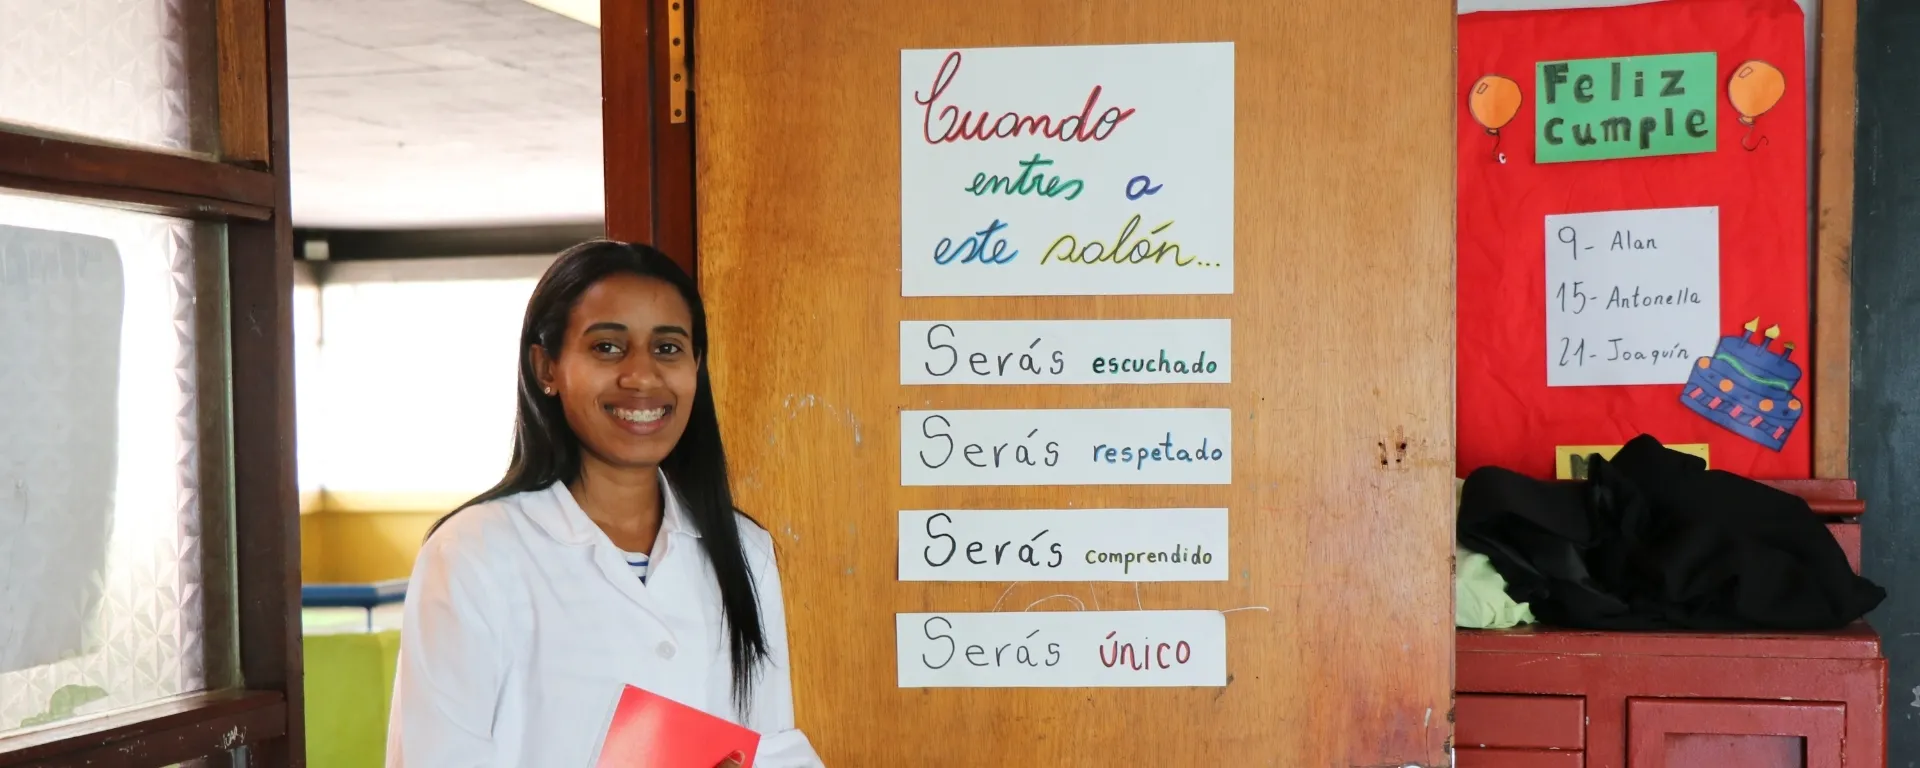 Cuando
entres a
este salón...
Serás escuchado
Serás respetado
Serás comprendido
Serás único
Feliz
cumple
9- Alan
15- Antonella
21- Joaquín